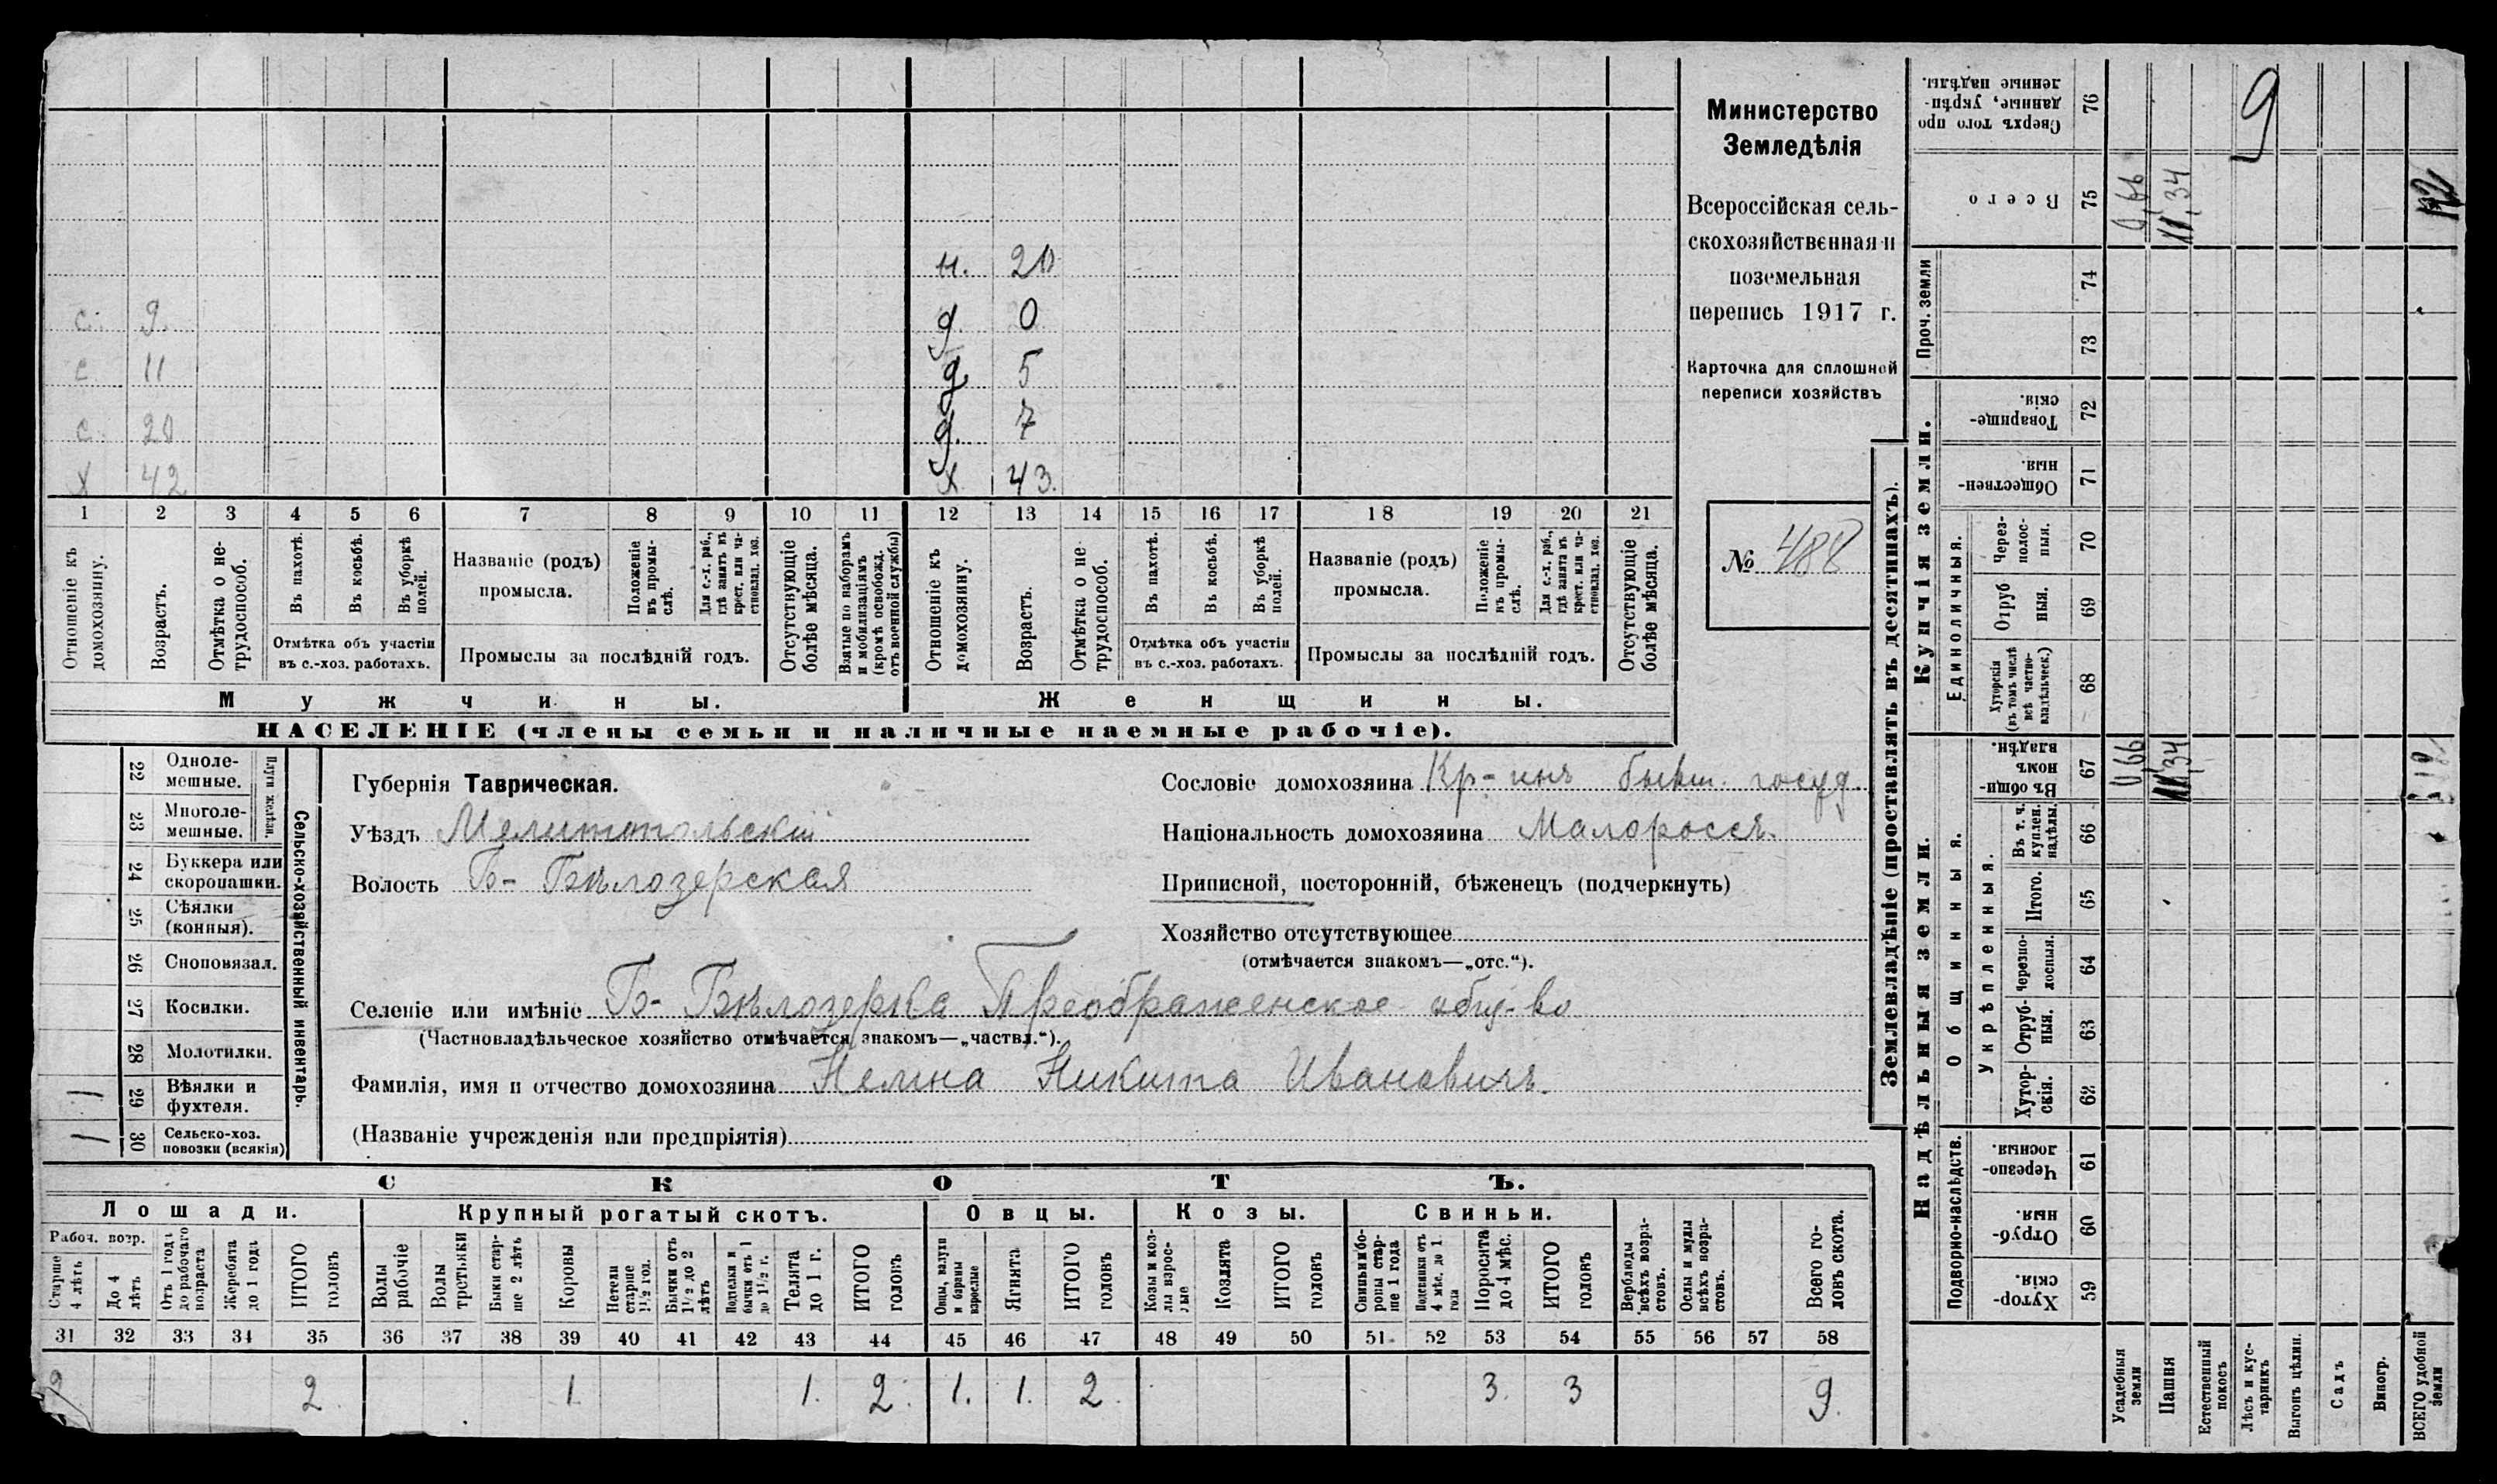 Министерство
Земледѣлія
Всероссійская сель-
скохозяйственная и
поземельная
перепись 1917 г.
Карточка для сплошной
переписи хозяйствъ
№ 488
н. 20
с. 9. д 0
с 11 д 5
с. 20 д. 7
х 42 х 43.
1 2 3 4 5 6 7 8 9 10 11 12 13 14 15 16 17 18 19 20 21
Отношеніе къ домохозяину.
Возрастъ.
Отмѣтка о не-трудоспособ.
Въ пахотѣ.
Въ косьбѣ.
Въ уборкѣ полей.
Отмѣтка объ участіи
въ с.-хоз. работахъ.
Названіе (родъ)
промысла.
Положеніе въ промы-слѣ.
Для с.-х. раб., гдѣ занятъ въ крест. или ча-стновлад. хоз.
Промыслы за послѣдній годъ.
Отсутствующіе болѣе мѣсяца.
Взятые по наборамъ и мобилизаціямъ (кромѣ освобожд. отъ военной службы)
Отношеніе къ домохозяину.
Возрастъ.
Отмѣтка о не трудоспособ.
Въ пахотѣ.
Въ косьбѣ.
Въ уборкѣ полей.
Отмѣтка объ участіи
въ с.-хоз. работахъ.
Названіе (родъ)
промысла.
Положеніе въ промы-слѣ.
Для с.-х. раб., гдѣ занята въ крест. или ча-стновлад. хоз.
Промыслы за послѣдній годъ.
Отсутствующіе болѣе мѣсяца.
Мужчины. Женщины.
НАСЕЛЕНІЕ (члены семьи и наличные наемные рабочіе).
22 Одноле-мешные.
23 Многоле-мешные.
Плуги желѣзн.
24 Буккера или скоропашки.
25 Сѣялки (конныя).
26 Сноповязал.
27 Косилки.
28 Молотилки.
1 29 Вѣялки и фухтеля.
1 30 Сельско-хоз. повозки (всякія)
Сельско-хозяйственный инвентарь.
Губернія Таврическая.
Уѣздъ Мелитопольскій
Волость Б- Бѣлозерская
Сословіе домохозяина Кр-инъ бывш. госуд.
Національность домохозяина Малороссъ.
Приписной, посторонній, бѣженецъ (подчеркнуть)
Хозяйство отсутствующее
(отмѣчается знакомъ—„отс.“).
Селеніе или имѣніе Б- Бѣлозерка Преображенское общ-во
(Частновладѣльческое хозяйство отмѣчается знакомъ—„частвл.“).
Фамилія, имя и отчество домохозяина Никита Ивановичъ.
(Названіе учрежденія или предпріятія)
СКОТЪ.
Лошади. Крупный рогатый скотъ. Овцы. Козы. Свиньи.
Рабоч. возр.
Старше 4 лѣтъ
До 4 лѣтъ
Отъ 1 года до рабочаго возраста
Жеребята до 1 года
ИТОГО головъ
Волы рабочіе
Волы третьяки
Быки стар-ше 2 лѣтъ
Коровы
Нетели старше 1½ год.
Бычки отъ 1½ до 2 лѣтъ
Подтелки и бычки отъ 1 до 1½ г.
Телята до 1 г.
ИТОГО головъ
Овцы, валухи и бараны взрослые
Ягнята
ИТОГО головъ
Козы и коз-лы взрос-лые
Козлята
ИТОГО головъ
Свиньи и бо-ровы стар-ше 1 года
Подсвинки отъ 4 мѣс. до 1 года
Поросята до 4 мѣс.
ИТОГО головъ
Верблюды всѣхъ возра-стовъ.
Ослы и мулы всѣхъ возра-стовъ.
Всего го-ловъ скота.
31 32 33 34 35 36 37 38 39 40 41 42 43 44 45 46 47 48 49 50 51 52 53 54 55 56 57 58
2 2 1 1. 2. 1. 1. 2. 3. 3 9.
Землевладѣніе (проставлять въ десятинахъ).
Купчія земли.
Надѣльныя земли.
76 Сверхъ того про данные, укрѣп-ленные надѣлы.
9
75 Всего 0,66 11,34 12
Проч. земли
74
73
72 Товарище-скія.
71 Обществен-ныя.
Единоличныя.
70 Через-полос-ныя.
69 Отруб ныя.
68 Хуторскія (въ томъ числѣ всѣ частно-владѣльческ.)
67 Въ общин-номъ владѣн. 0,66 11,34
Общинныя.
Укрѣпленныя.
66 Въ т. ч. куплен. надѣлы.
65 Итого.
64 Черезпо-лосныя.
63 Отруб-ныя.
62 Хутор-скія.
Подворно-наслѣдств.
61 Черезпо-лосныя.
60 Отруб-ныя.
59 Хутор-скія.
Усадебныя земли
Пашня
Естественный покосъ
Лѣсъ и кус-тарникъ
Выгонъ цѣлин.
Садъ
Виногр.
ВСЕГО удобной земли